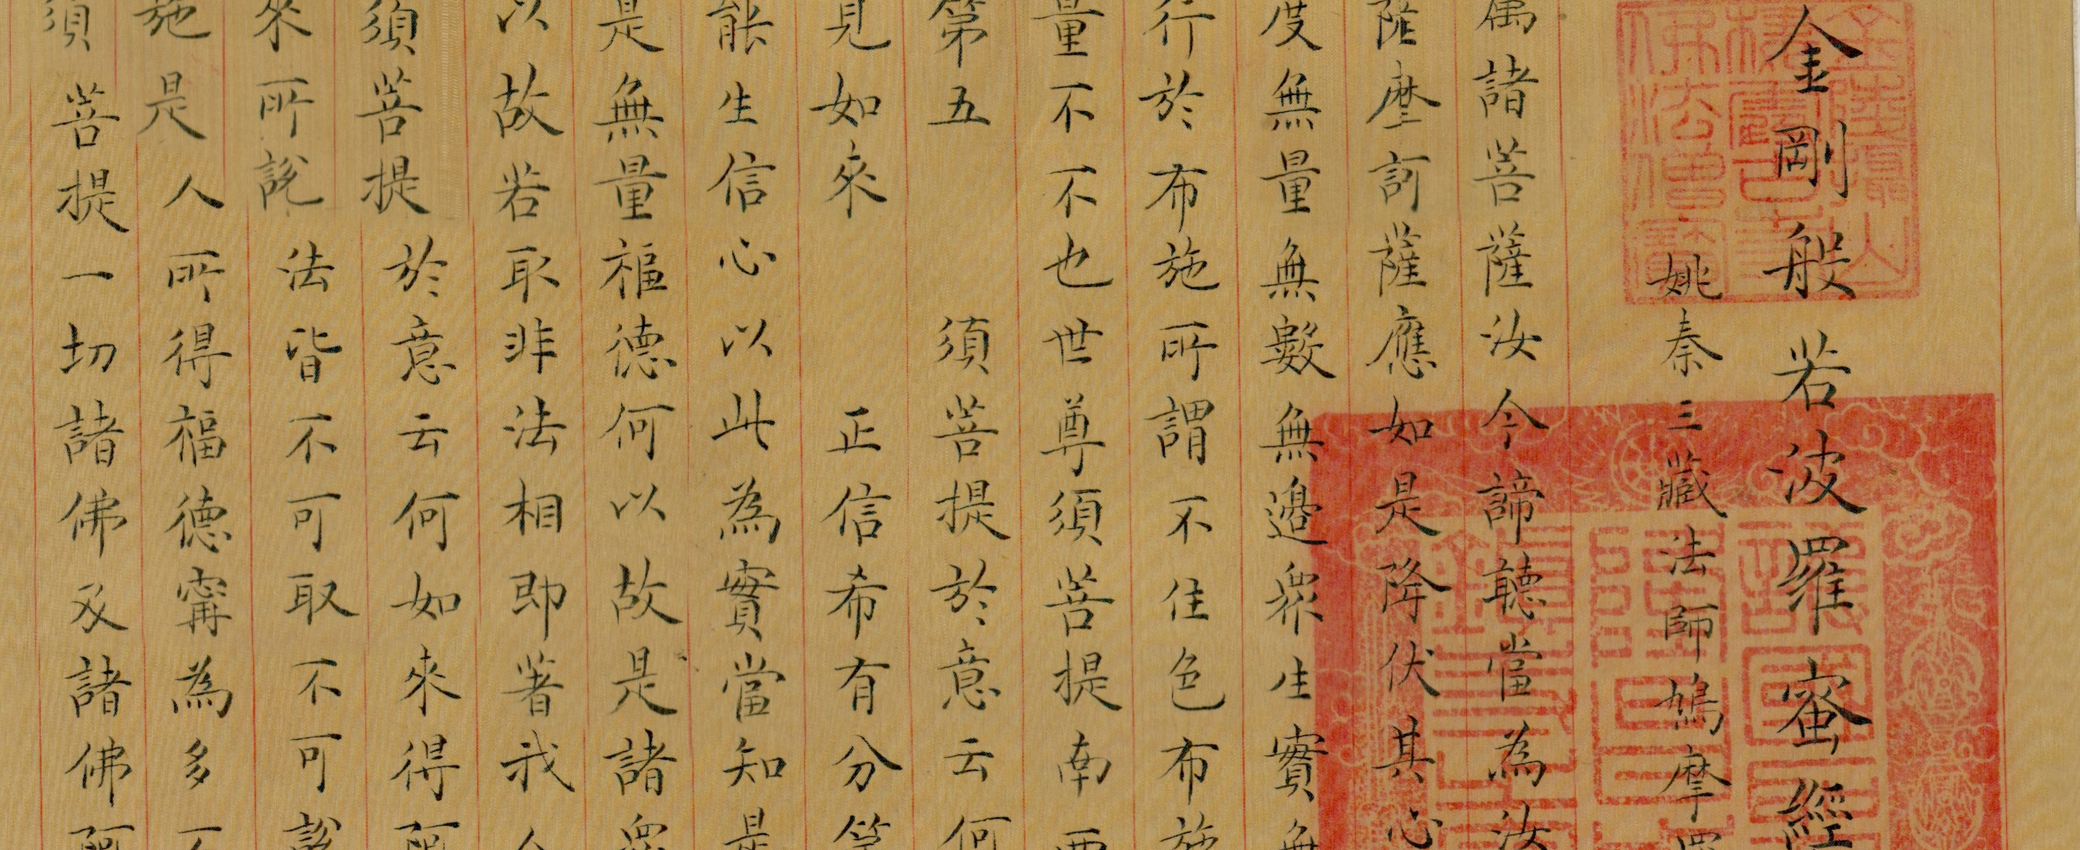 金剛般若波羅蜜經
姚秦三藏法師鳩摩
属諸菩薩汝今諦聽當為汝
薩摩訶薩應如是降伏其心
度無量無數無邊衆生實無
行於布施所謂不住色布施
量不不也世尊須菩提南西
第五 須菩提於意云何
見如來 正信希有分第
能生信心以此為實當知是
是無量福德何以故是諸衆
以故若取非法相即著我人
須菩提於意云何如來得阿
來所說法皆不可取不可說
施是人所得福德寗為多不
須菩提一切諸佛及諸佛阿